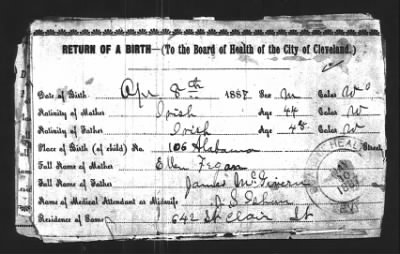 RETURN OF A BIRTH—(To the Board of Health of the City of Cleveland.)
Date of Birth Apr 8th 1887 Sex M Color W
Nativity of Mother Irish Age 44 Color W
Nativity of Father Irish Age 48 Color W
Place of Birth (of child) No. 106 Alabama Street
Full Name of Mother Ellen Fegan
Full Name of Father James McGivern
Name of Medical Attendant or Midwife J. S.
Residence of Same 642 St Clair St
HEALTH
1887